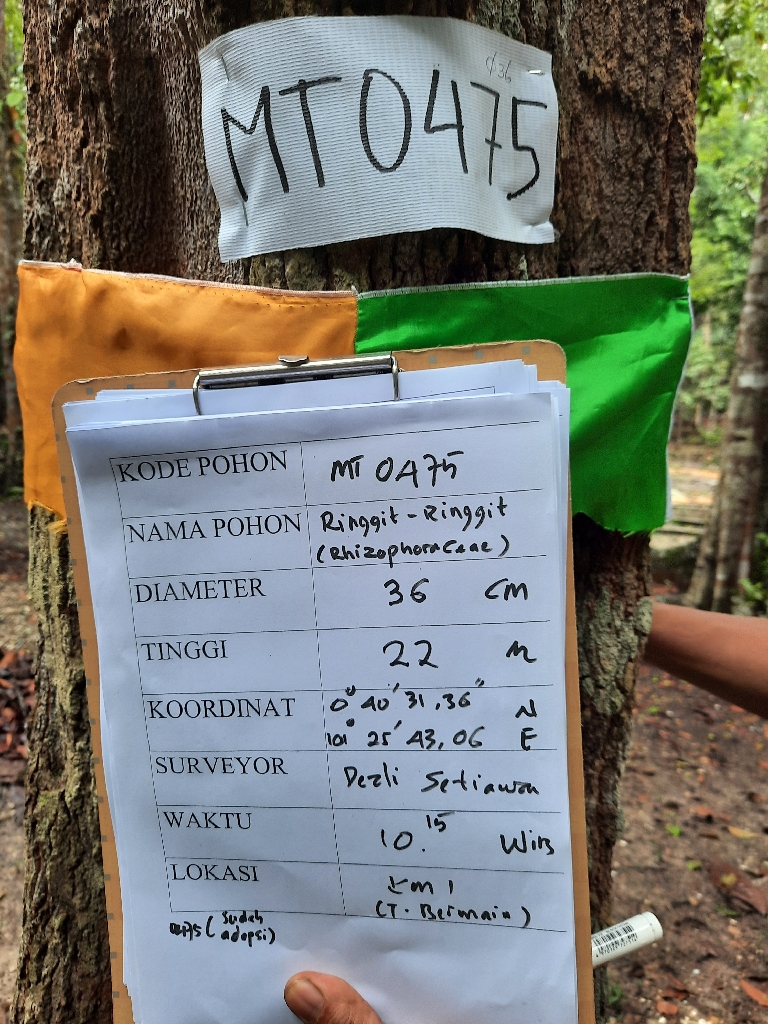 d36
MT0475
KODE POHON MT 0475
NAMA POHON Ringgit - Ringgit
(Rhizophoraceae)
DIAMETER 36 cm
TINGGI 22 m
KOORDINAT 0° 40' 31,36" N
101° 25' 43,06 E
SURVEYOR Dezli Setiawan
WAKTU 10.15 Wib
LOKASI Km 1
(T. Bermain)
0475 (sudah
adopsi)